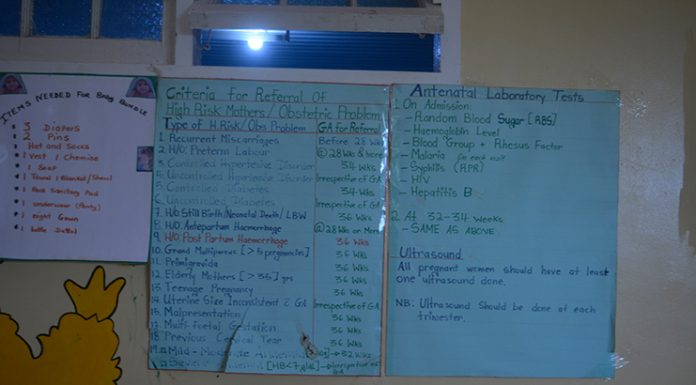 ITEMS NEEDED FOR Baby BUNDLE
3 Diapers
2 Pins
Hat and Socks
1 Vest / Chemise
1 Soap
1 Towel / Blanket / Shawl
1 Pack Sanitary Pad
1 underwear (Panty)
1 night Gown
1 bottle Dettol
Criteria For Referral Of
High Risk Mothers / Obstetric Problem
Type of H Risk / Obs Problem GA for Referral
1. Recurrent Miscarriages Before 28 Wks
2. H/O Preterm Labour @ 28 Wks &
3. Controlled Hypertensive Disorder 34 Wks
4. Uncontrolled Hypertensive Disorder Irrespective of GA
5. Controlled Diabetes 34 Wks
6. Uncontrolled Diabetes Irrespective of GA
7. H/O Still Birth/Neonatal Death/ LBW 36 Wks
8. H/O Antepartum Haemorrhage @ 28 Wks or More
9. H/O Post Partum Haemorrhage 36 Wks
10. Grand Multiparous [>5 pregnancies] 36 Wks
11. Primigravida 36 Wks
12. Elderly Mothers [>35] yrs 36 Wks
13. Teenage Pregnancy 36 Wks
14. Uterine Size Inconsistent c GA Irrespective of GA
15 Malpresentation 36 Wks
17. Multi-foetal Gestation 36 Wks
18. Previous Cervical Tear 36 Wks
19. Mild - Moderate 32 Wks
Severe [HB<7 g/dL] Irrespective of GA
Antenatal Laboratory Tests
1. On Admission:
- Random Blood Sugar [RBS]
- Haemoglobin Level
- Blood Group + Rhesus Factor
- Malaria
- Syphilis (RPR)
- HIV
- Hepatitis B
2. At 32-34 Weeks
- SAME AS ABOVE
Ultrasound
All pregnant women should have at least
one ultrasound done.
NB: Ultrasound Should be done at each
trimester.